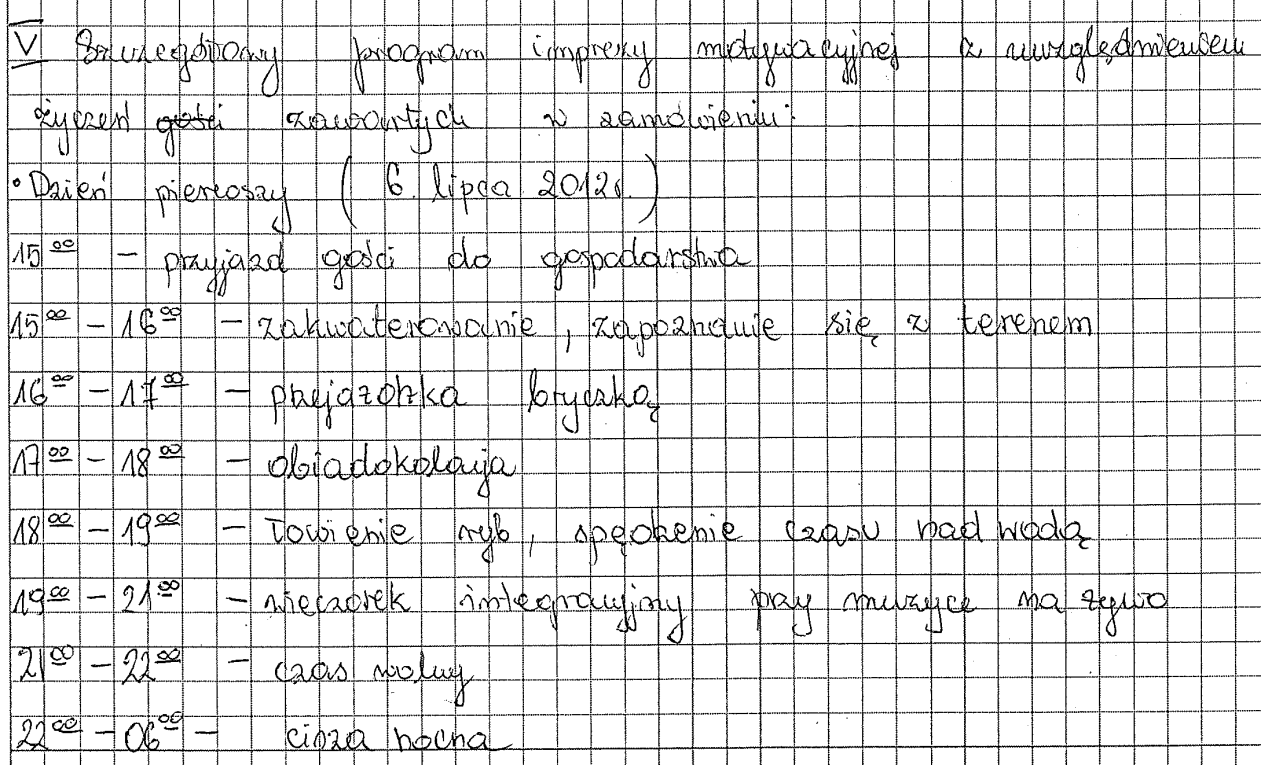 V Szczegółowy program imprezy motywacyjnej z uwzględnieniem
życzeń gości zawartych w zamówieniu:
• Dzień pierwszy ( 6. lipca 2012r. )
15 00 – przyjazd gości do gospodarstwa
15 00 – 16 00 – zakwaterowanie, zapoznanie się z terenem
16 00 – 17 00 – przejażdżka bryczką
17 00 – 18 00 – obiadokolacja
18 00 – 19 00 – łowienie ryb, spędzenie czasu nad wodą
19 00 – 21 00 – wieczorek integracyjny przy muzyce na żywo
21 00 – 22 00 – czas wolny
22 00 – 06 00 – cisza nocna